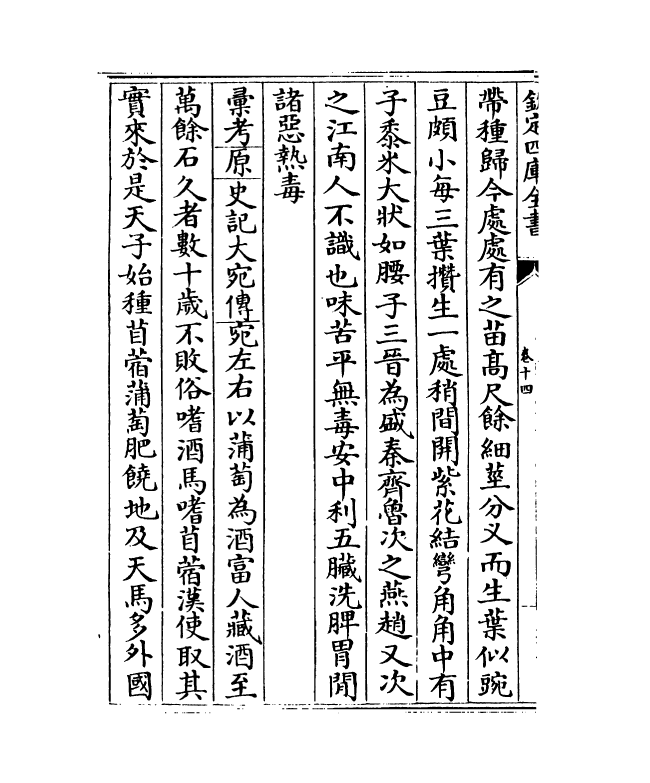 欽定四庫全書
卷十四
帶種歸今處處有之苗高尺餘細莖分义而生葉似豌
豆頗小每三葉攢生一處稍間開紫花結彎角角中有
子黍米大狀如腰子三晉為盛秦齊魯次之燕趙又次
之江南人不識也味苦平無毒安中利五臟洗脾胃間
諸惡熱毒
彚考原史記大宛傳宛左右以蒲萄為酒富人藏酒至
萬餘石久者數十歲不敗俗嗜酒馬嗜苜蓿漢使取其
實來於是天子始種苜蓿蒲萄肥饒地及天馬多外國